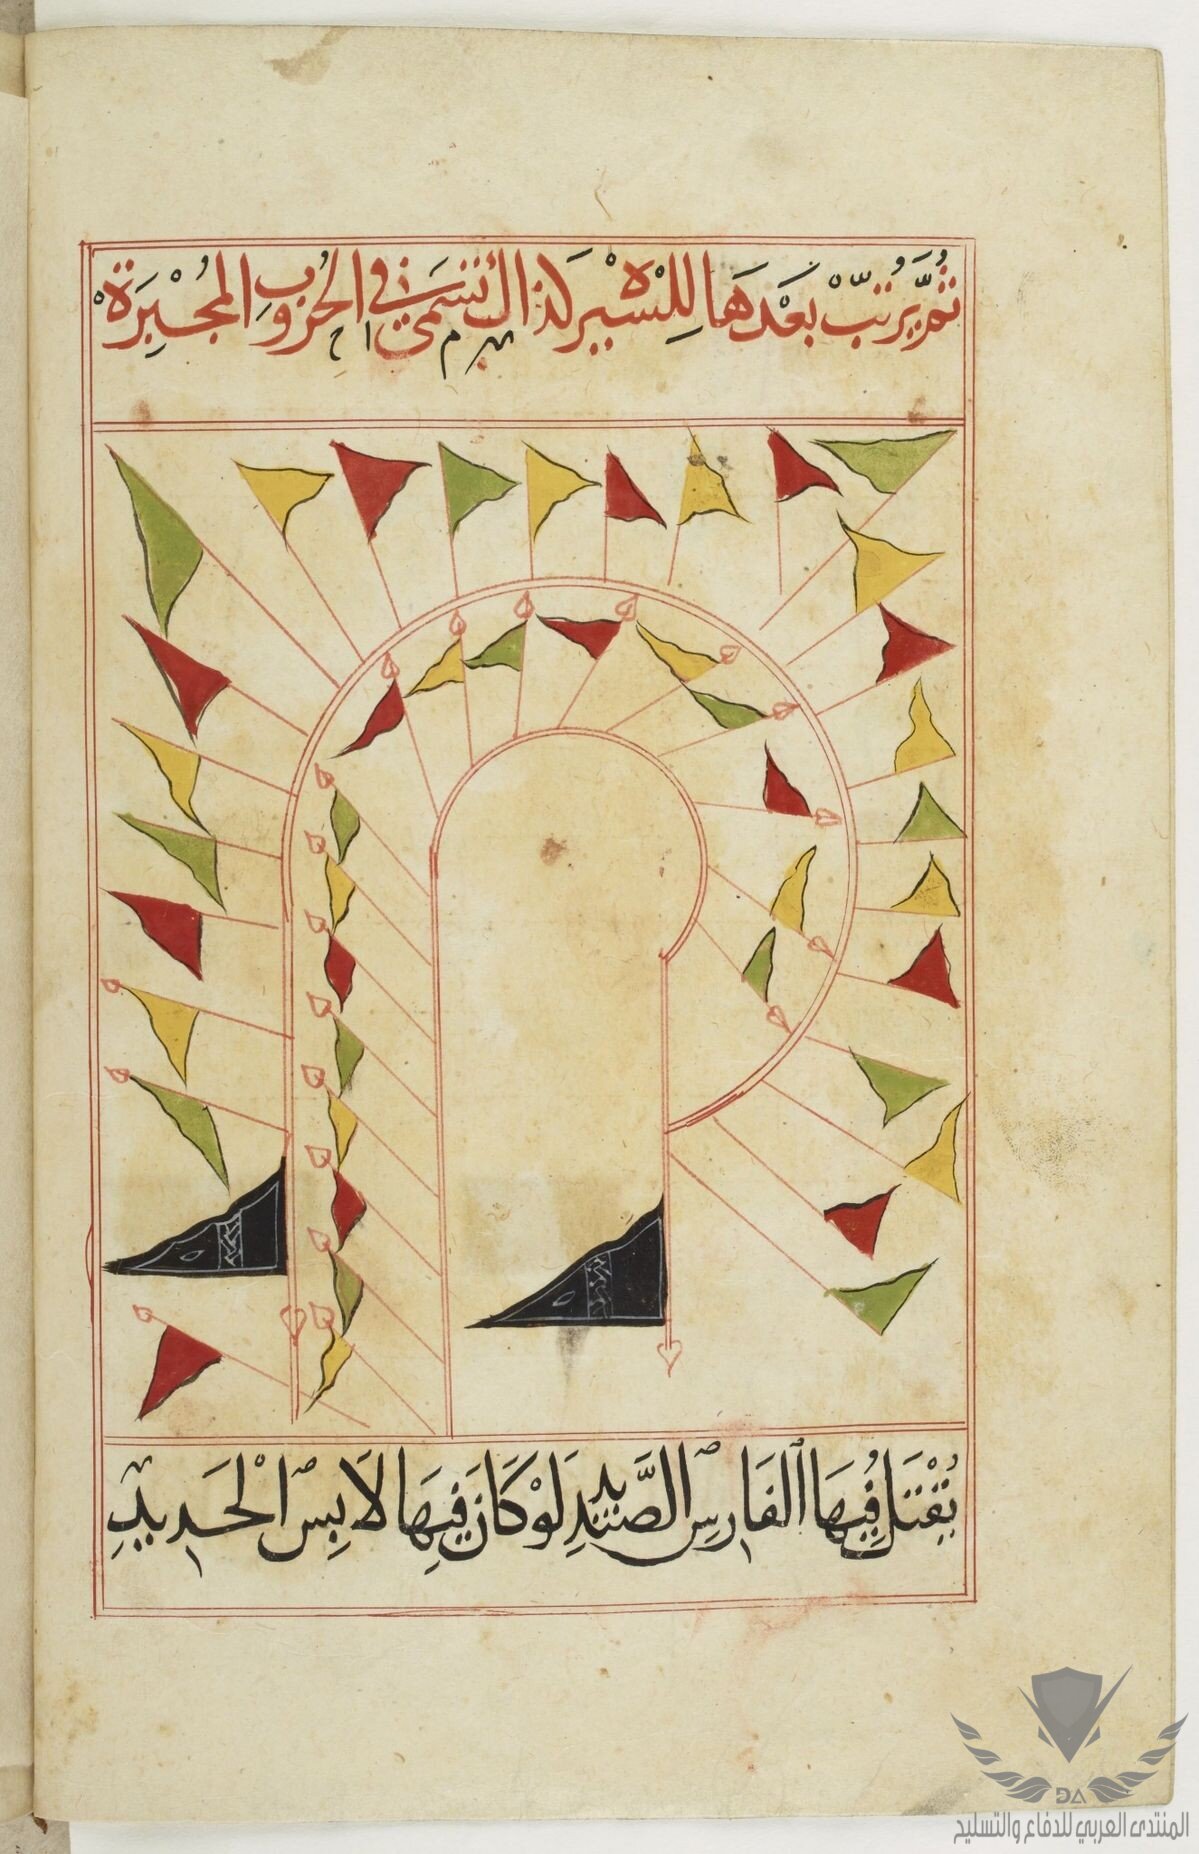 ثُمَّ يُرَتِّبْ بَعْدَهَا لِلْسَيْرَه كذَا الَّتي تسَمَى في الحُرُوبِ المُجْبِرَة
يُقْتَل فِيهَا الفَارِس الصَّنْدِيدِ لَوْ كَانَ فِيهَا لَابِسَ الْحَدِيدِ
DA
المنتدى العربي للدفاع والتسليح